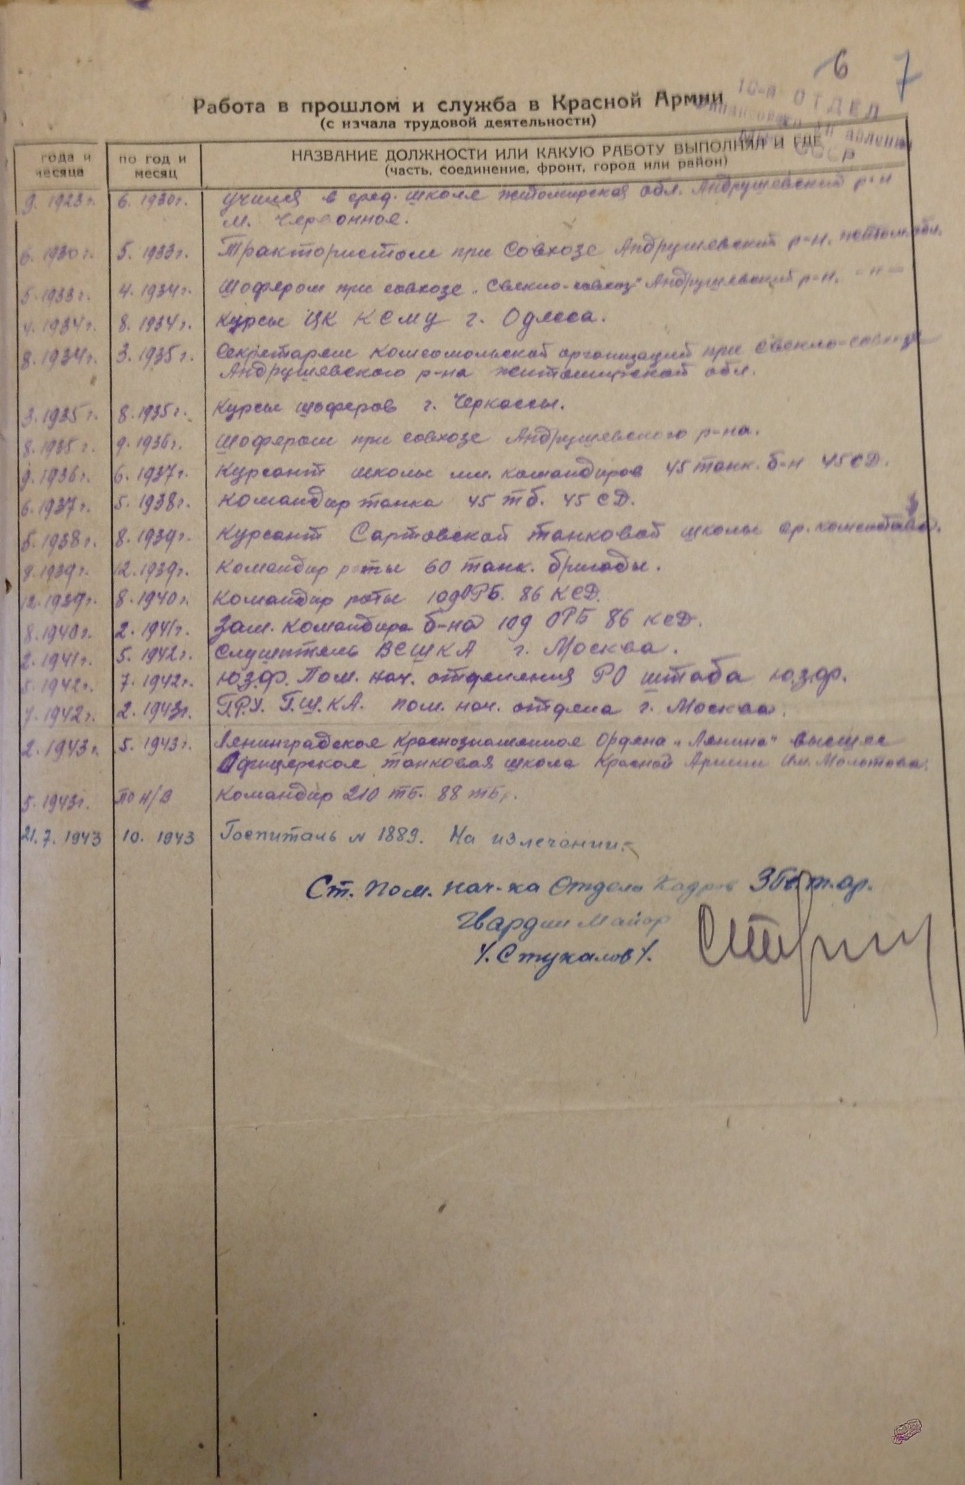 6 7
10-й ОТДЕЛ
СССР
Работа в прошлом и служба в Красной Армии
(с начала трудовой деятельности)
года и месяца
по год и месяц
НАЗВАНИЕ ДОЛЖНОСТИ ИЛИ КАКУЮ РАБОТУ ВЫПОЛНЯЛ И ГДЕ
(часть, соединение, фронт, город или район)
9. 1923 г. 6. 1930 г. Учился в сред. школе Житомирская обл. Андрушевский р-н
м. Червонное.
6. 1930 г. 5. 1933 г. Трактористом при Совхозе Андрушевский р-н, Житом. обл.
5. 1933 г. 4. 1934 г. Шофером при совхозе „Свекло-совхоз" Андрушевский р-н. – н –
4. 1934 г. 8. 1934 г. Курсы ЦК КСМУ г. Одесса.
8. 1934 г. 3. 1935 г. Секретарем Комсомольской организаций при Свекло-совхозе
Андрушевского р-на Житомирской обл.
3. 1935 г. 8. 1935 г. Курсы шоферов г. Черкассы.
8. 1935 г. 9. 1936 г. Шофером при совхозе Андрушевского р-на.
9. 1936 г. 6. 1937 г. Курсант школы мл. командиров 45 танк. б-н 45 СД.
6. 1937 г. 5. 1938 г. Командир танка 45 тб. 45 СД.
5. 1938 г. 8. 1939 г. Курсант Сартовской танковой школы ср. комсостава.
8. 1939 г. 12. 1939 г. Командир роты 60 танк. бригады.
12. 1939 г. 8. 1940 г. Командир роты 109 ОРБ. 86 КСД.
8. 1940 г. 2. 1941 г. Зам. Командира б-на 109 ОРБ 86 КСД.
2. 1941 г. 5. 1942 г. Слушатель ВСШКА г. Москва.
5. 1942 г. 7. 1942 г. Ю.З.Ф. Пом. нач. отделения РО штаба Ю.З.Ф.
7. 1942 г. 2. 1943 г. Г.Р.У. Г.Ш.К.А. пом. нач. отдела г. Москва.
2. 1943 г. 5. 1943 г. Ленинградская Краснознаменное Ордена „Ленина" высшее
Офицерское танковая школа Красной Армии им. Молотова.
5. 1943 г. по н/в Командир 210 тб. 88 тбр.
21. 7. 1943 10. 1943 Госпиталь № 1889. На излечении.
Ст. Пом. Нач-ка Отдела Кадров 3 Гв. т. ар.
Гвардии Майор
/. Стукалов /.